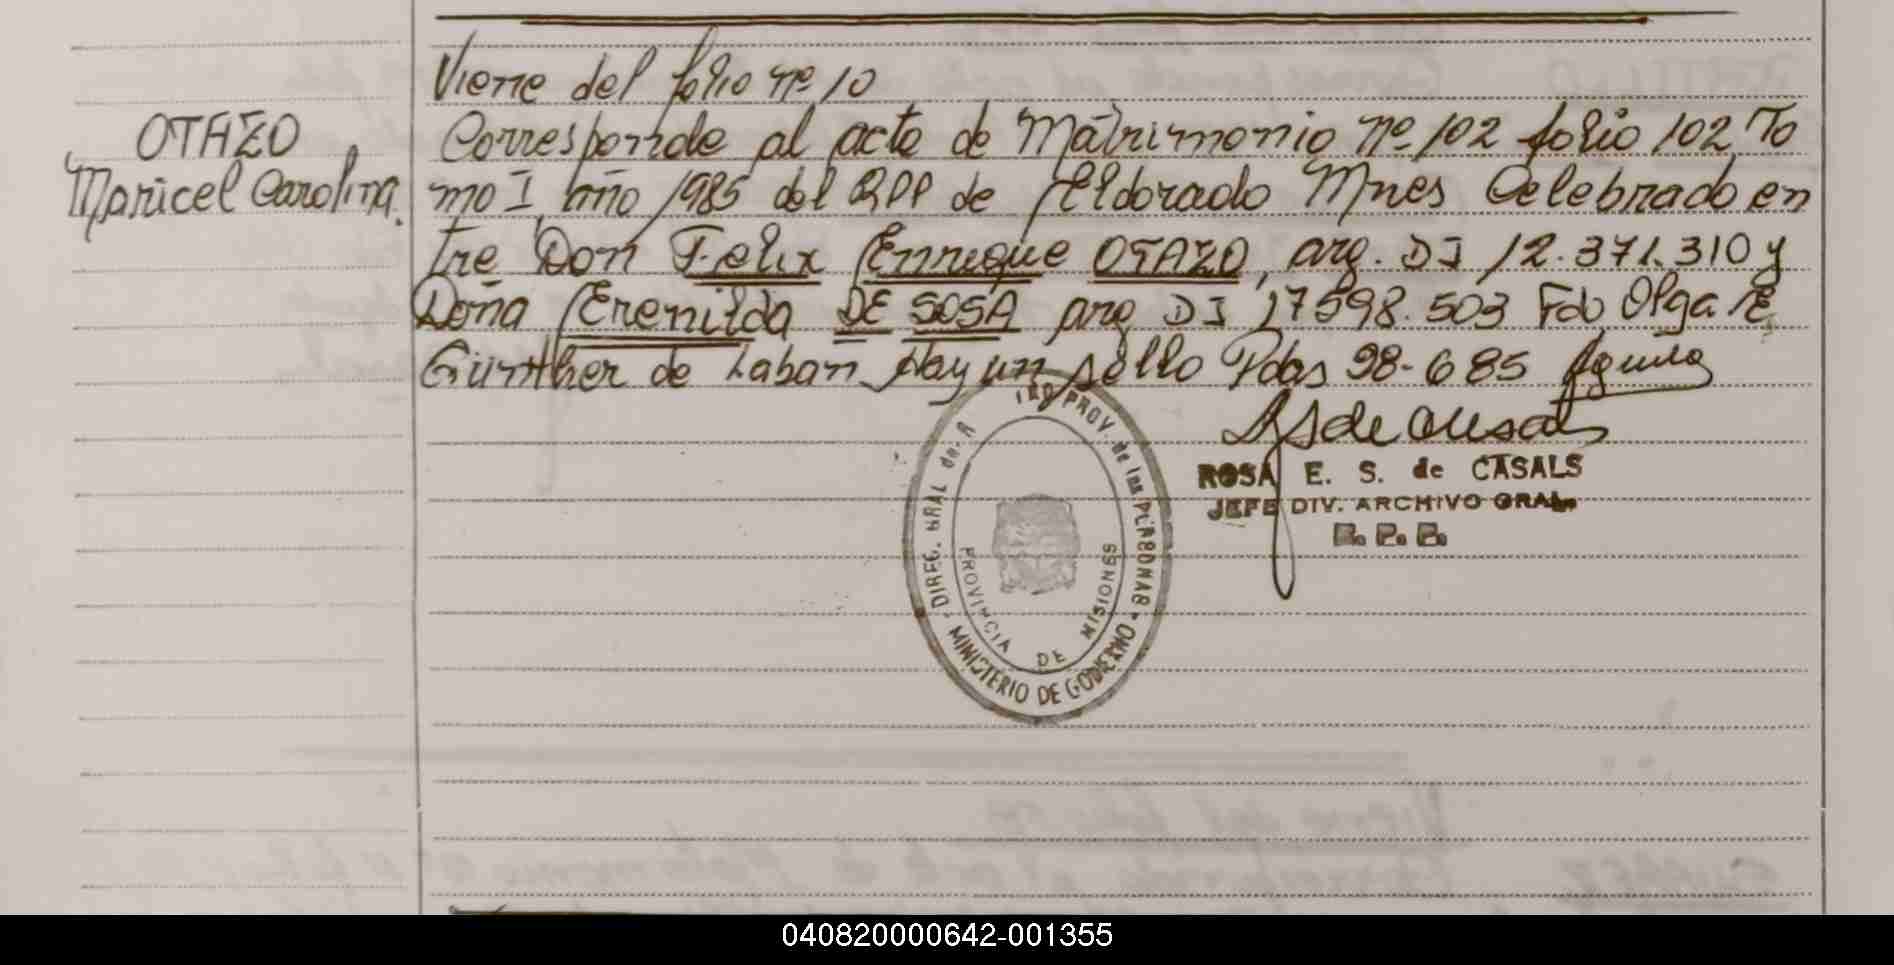 Viene del folio nº 10
OTAZO
Maricel Carolina.
Corresponde al acta de Matrimonio nº 102 folio 102 To
mo I, año 1985 del RPP de Eldorado Mnes Celebrado en
tre Don Felix Enrique OTAZO, arg. DI 12.371.310 y
Doña Erenilda DE SOSA arg DI 17598.503 Fdo Olga E.
Günther de Laban Hay un sello Pdas 28-6 85 Aguila
ROSA E. S. de CASALS
JEFE DIV. ARCHIVO GRAL.
R. P. P.
DIREC. GRAL del R PROV. de las PERSONAS - MINISTERIO DE GOBIERNO -
PROVINCIA DE MISIONES
040820000642-001355